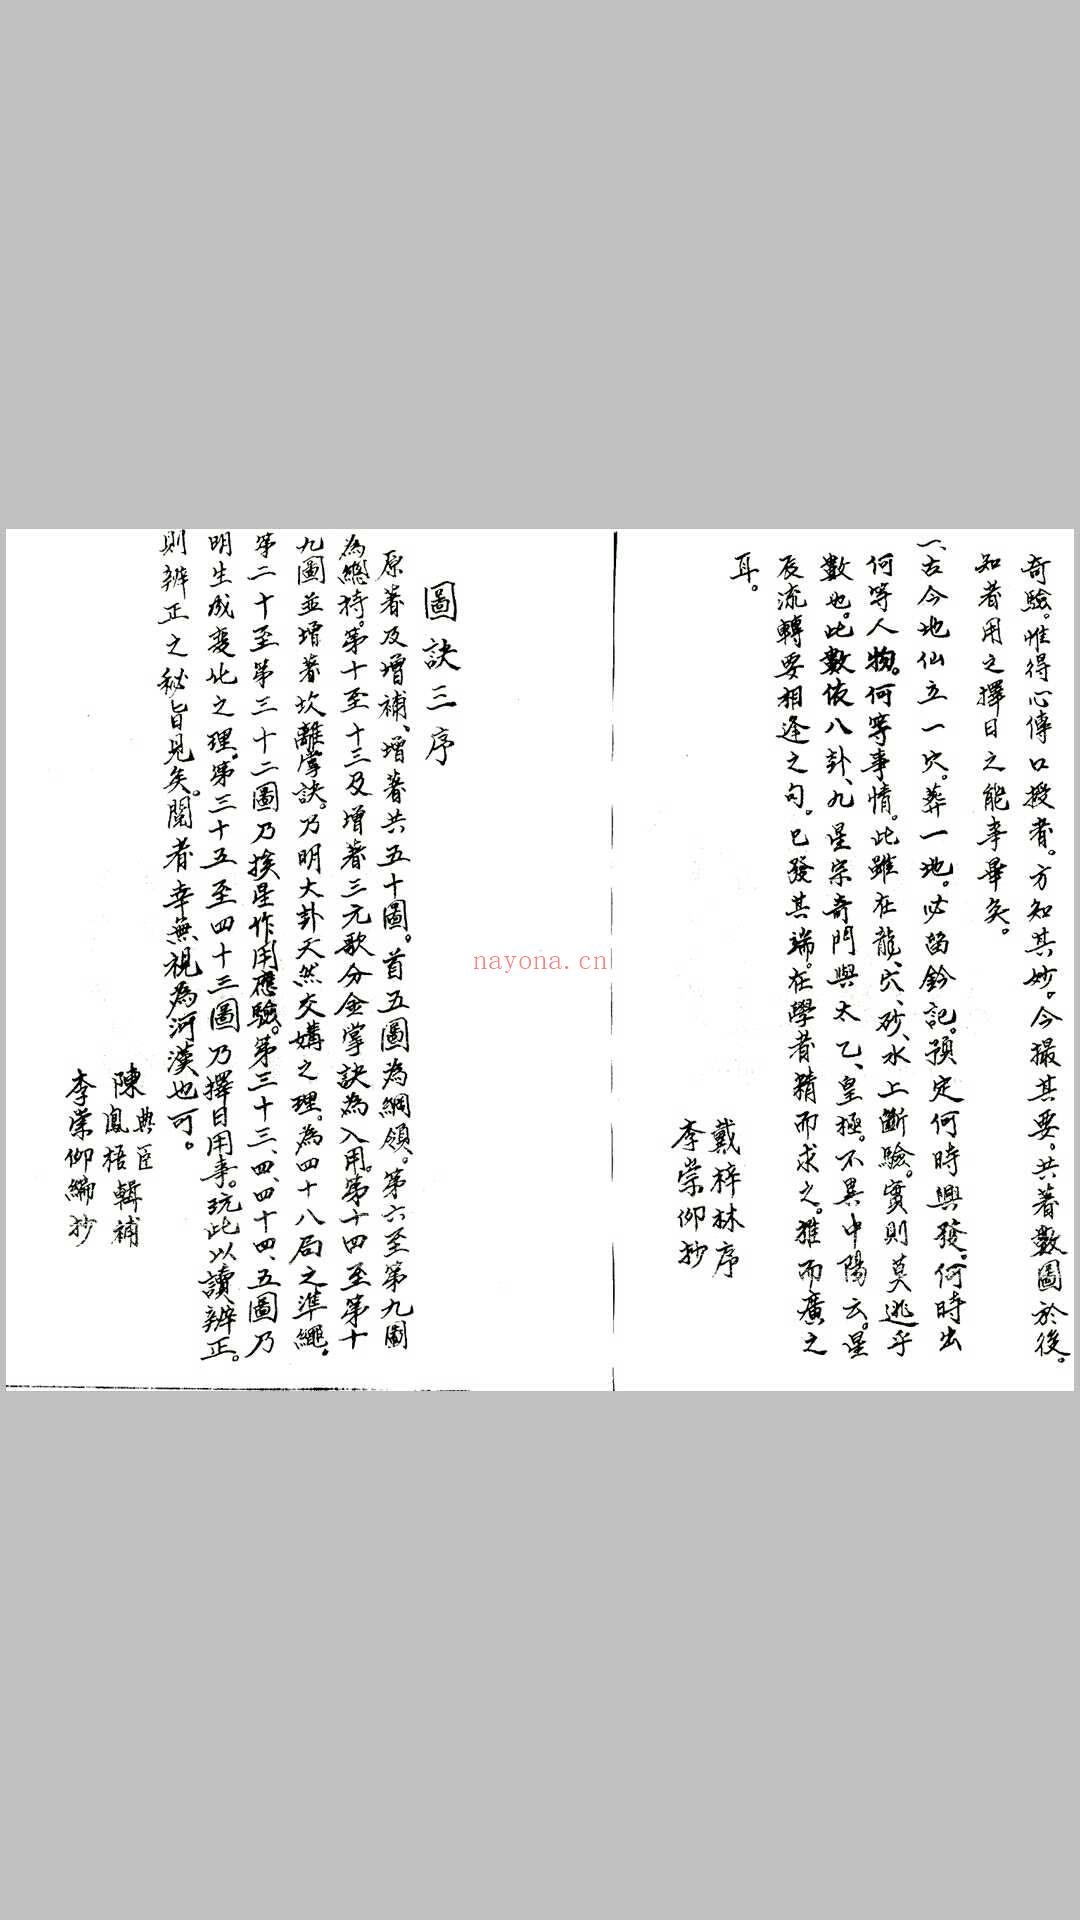 奇驗。惟得心傳口授者。方知其妙。今撮其要。共著數圖於後。
知者用之擇日之能事畢矣。
一、古今地仙立一穴。葬一地。必留鈐記。預定何時興發。何時出
何等人物。何等事情。此雖在龍、穴、砂、水上斷驗。實則莫逃乎
數也。此數依八卦、九星宗奇門與太乙、皇極。不異中陽云。星
辰流轉要相逢之句。已發其端。在學者精而求之。推而廣之
耳。
戴梓林序
李崇仰抄
圖訣三序
原著及增補、增著共五十圖。首五圖為綱領。第六至第九圖
為總持。第十至十三及增著三元歌分金掌訣為入用。第十四至第十
九圖並增著坎離掌訣。乃明大卦天然交媾之理。為四十八局之準繩。
第二十至第三十二圖乃挨星作用應驗。第三十三、四、四十四、五圖乃
明生成變化之理。第三十五至四十三圖乃擇日用事。玩此以讀辨正。
則辨正之秘旨見矣。閱者幸無視為河漢也可。
陳典臣鳳梧輯補
李崇仰編抄
nayona.cn